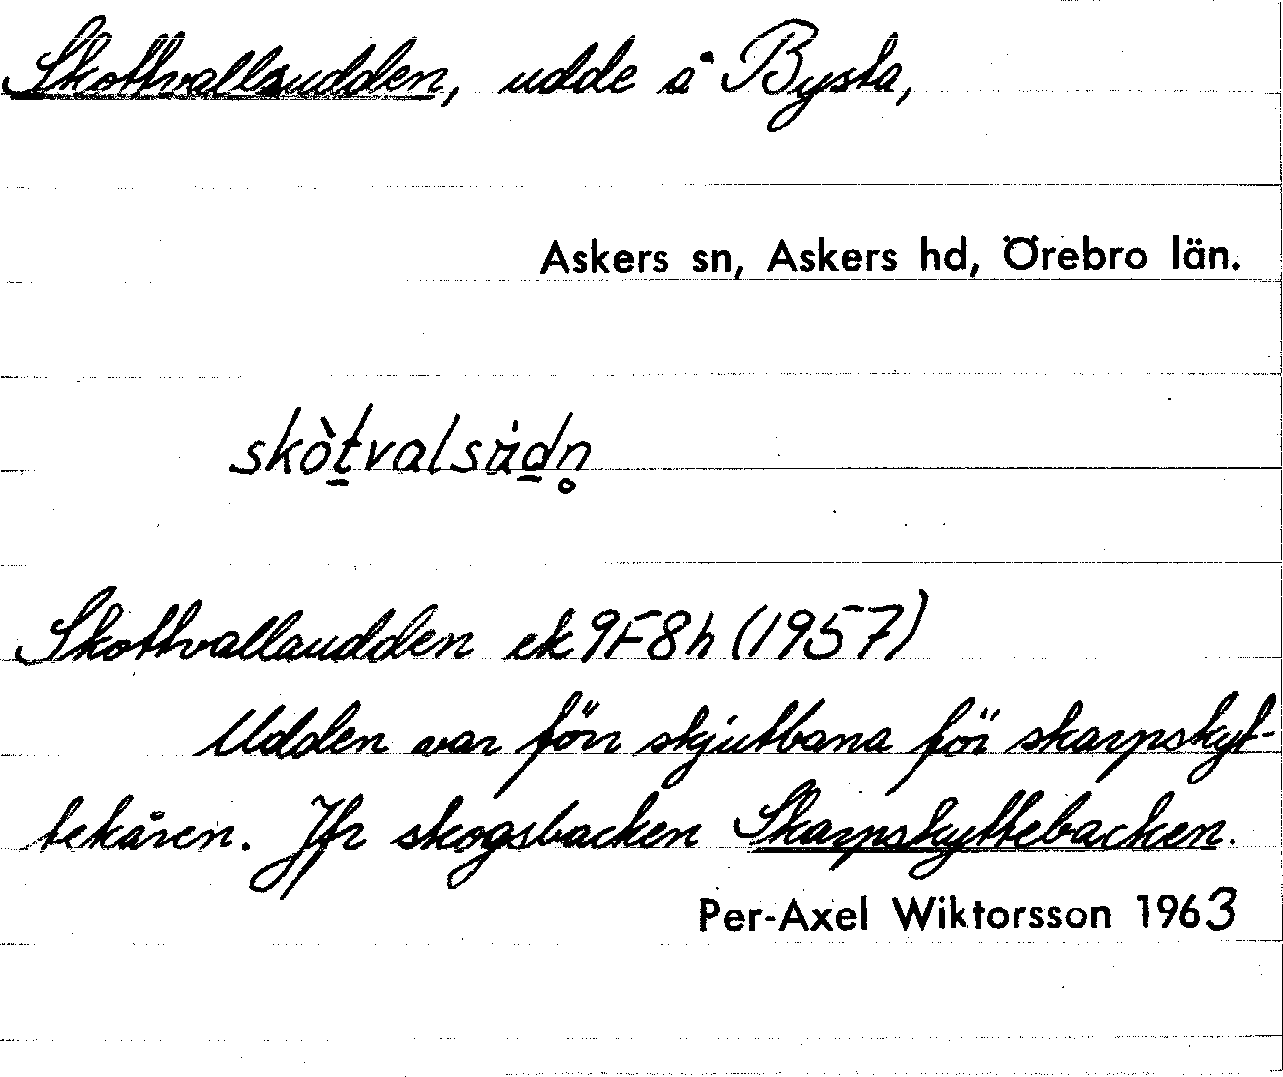 Skottvallsudden, udde å Bysta,
Askers sn, Askers hd, Örebro län.
skòt̲valsùd̲n̥
Skottvallaudden ek 9F8h (1957)
Udden var förr skjutbana för skarpskyt-
tekåren. Jfr skogsbacken Skarpskyttebacken.
Per-Axel Wiktorsson 1963